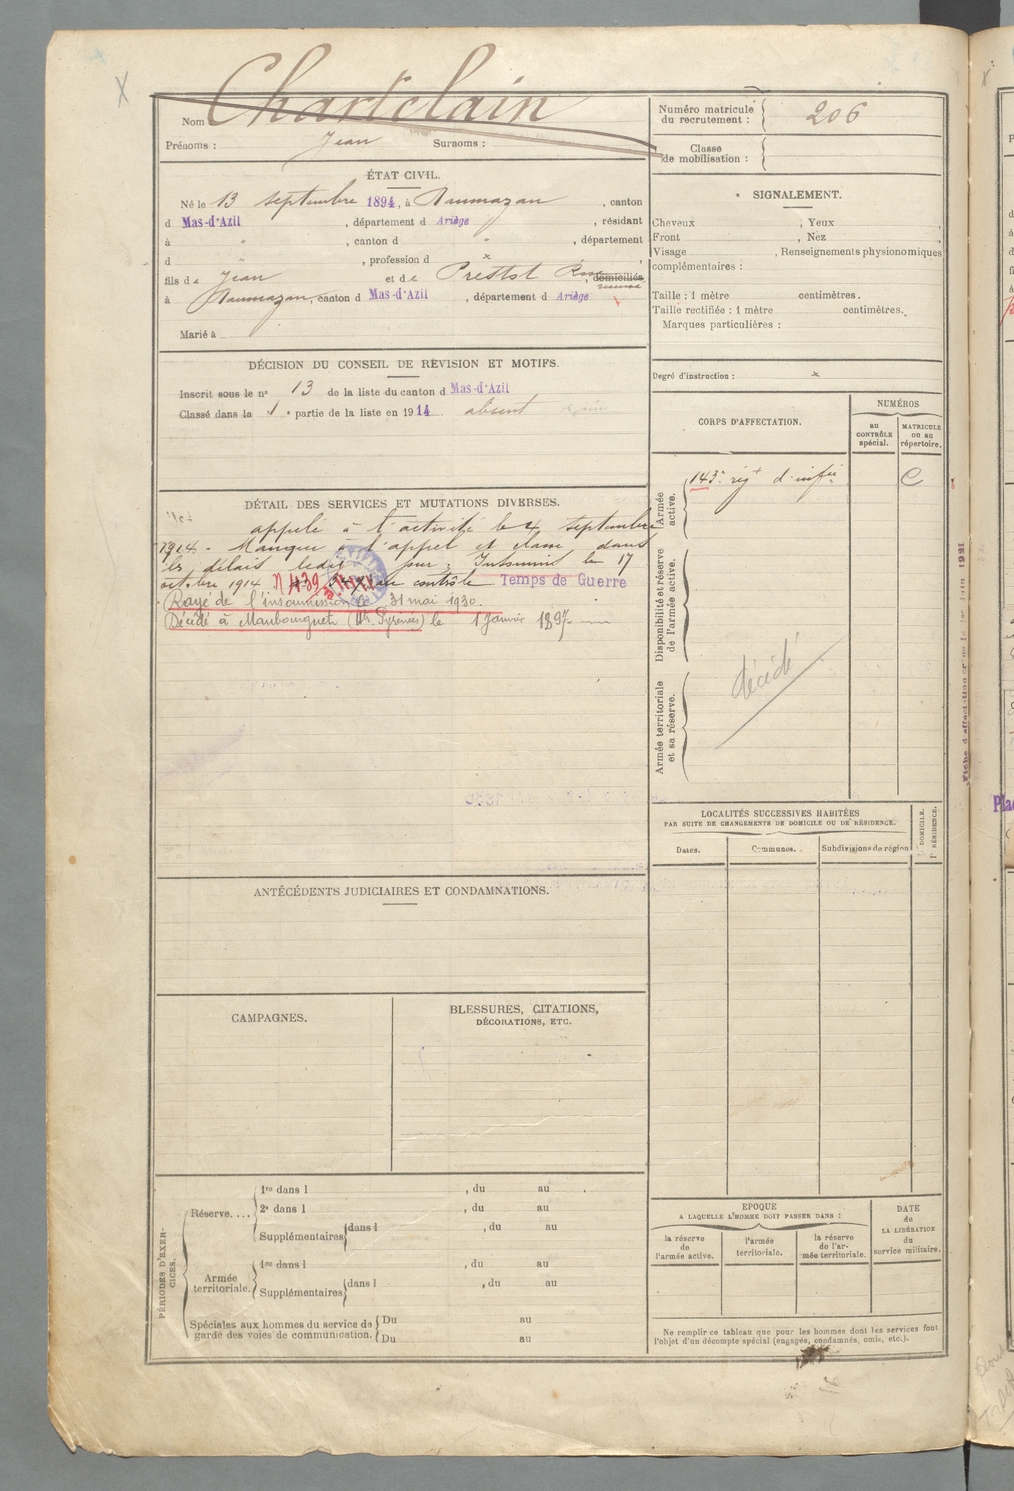 Nom : Chartelain
Prénoms : Jean Surnoms :
ÉTAT CIVIL.
Né le 13 septembre 1894, à Daumazan, canton
d Mas-d'Azil, département d Ariège, résidant
à " , canton d " , département
d , profession d ×
fils de Jean et de domiciliés
à Daumazan, canton d Mas-d'Azil, département d Ariège
Marié à
DÉCISION DU CONSEIL DE REVISION ET MOTIFS.
Inscrit sous le n° 13 de la liste du canton d Mas-d'Azil
Classé dans la 1e partie de la liste en 1914. absent
DÉTAIL DES SERVICES ET MUTATIONS DIVERSES.
appelé à l'activité le 4 septembre
1914. Manque à l'appel et classé dans
les délais Insoumis le 17
octobre 1914 N 439 au contrôle Temps de Guerre
Rayé de l'insoumission le 31 mai 1930.
Décédé à Maubourguet (Htes Pyrénées) le 1 Janvier 1897
ANTÉCÉDENTS JUDICIAIRES ET CONDAMNATIONS.
CAMPAGNES.
BLESSURES, CITATIONS,
DÉCORATIONS, ETC.
PÉRIODES D'EXERCICES.
Réserve....
1re dans l , du au .
2e dans l , du au
Supplémentaires dans l , du au
Armée territoriale.
1re dans l , du au
Supplémentaires dans l , du au
Spéciales aux hommes du service de garde des voies de communication.
Du au
Du au
Numéro matricule du recrutement : 206
Classe de mobilisation :
SIGNALEMENT.
Cheveux , Yeux ,
Front , Nez ,
Visage , Renseignements physionomiques
complémentaires :
Taille : 1 mètre centimètres.
Taille rectifiée : 1 mètre centimètres.
Marques particulières :
Degré d'instruction : ×
CORPS D'AFFECTATION.
NUMÉROS
au CONTRÔLE spécial.
MATRICULE ou au répertoire.
Armée active.
143e régt d'infie C
Disponibilité et réserve de l'armée active.
décédé
Armée territoriale et sa réserve.
LOCALITÉS SUCCESSIVES HABITÉES
PAR SUITE DE CHANGEMENTS DE DOMICILE OU DE RÉSIDENCE.
Dates.
Communes.
Subdivisions de région
D. DOMICILE.
R. RÉSIDENCE.
EPOQUE
A LAQUELLE L'HOMME DOIT PASSER DANS :
la réserve de l'armée active.
l'armée territoriale.
la réserve de l'armée territoriale.
DATE de LA LIBÉRATION du service militaire.
Ne remplir ce tableau que pour les hommes dont les services font
l'objet d'un décompte spécial (engagés, condamnés, omis, etc.).